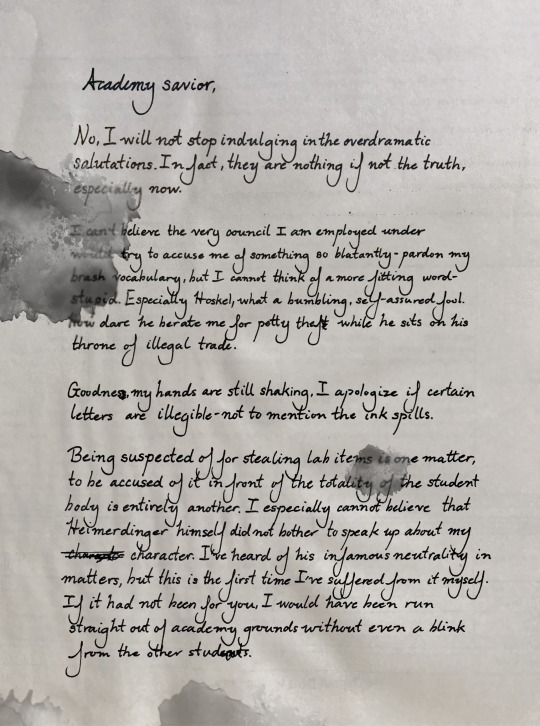 Academy savior,
No, I will not stop indulging in the overdramatic
salutations. In fact, they are nothing if not the truth,
especially now.
I can't believe the very council I am employed under
would try to accuse me of something so blatantly-pardon my
brash vocabulary, but I cannot think of a more fitting word-
stupid. Especially Hoskel, what a bumbling, self-assured fool.
How dare he berate me for petty theft while he sits on his
throne of illegal trade.
Goodness, my hands are still shaking, I apologize if certain
letters are illegible-not to mention the ink spills.
Being suspected of for stealing lab items is one matter,
to be accused of it in front of the totality of the student
body is entirely another. I especially cannot believe that
Heimerdinger himself did not bother to speak up about my
character. I've heard of his infamous neutrality in
matters, but this is the first time I've suffered from it myself.
If it had not been for you, I would have been run
straight out of academy grounds without even a blink
from the other students.